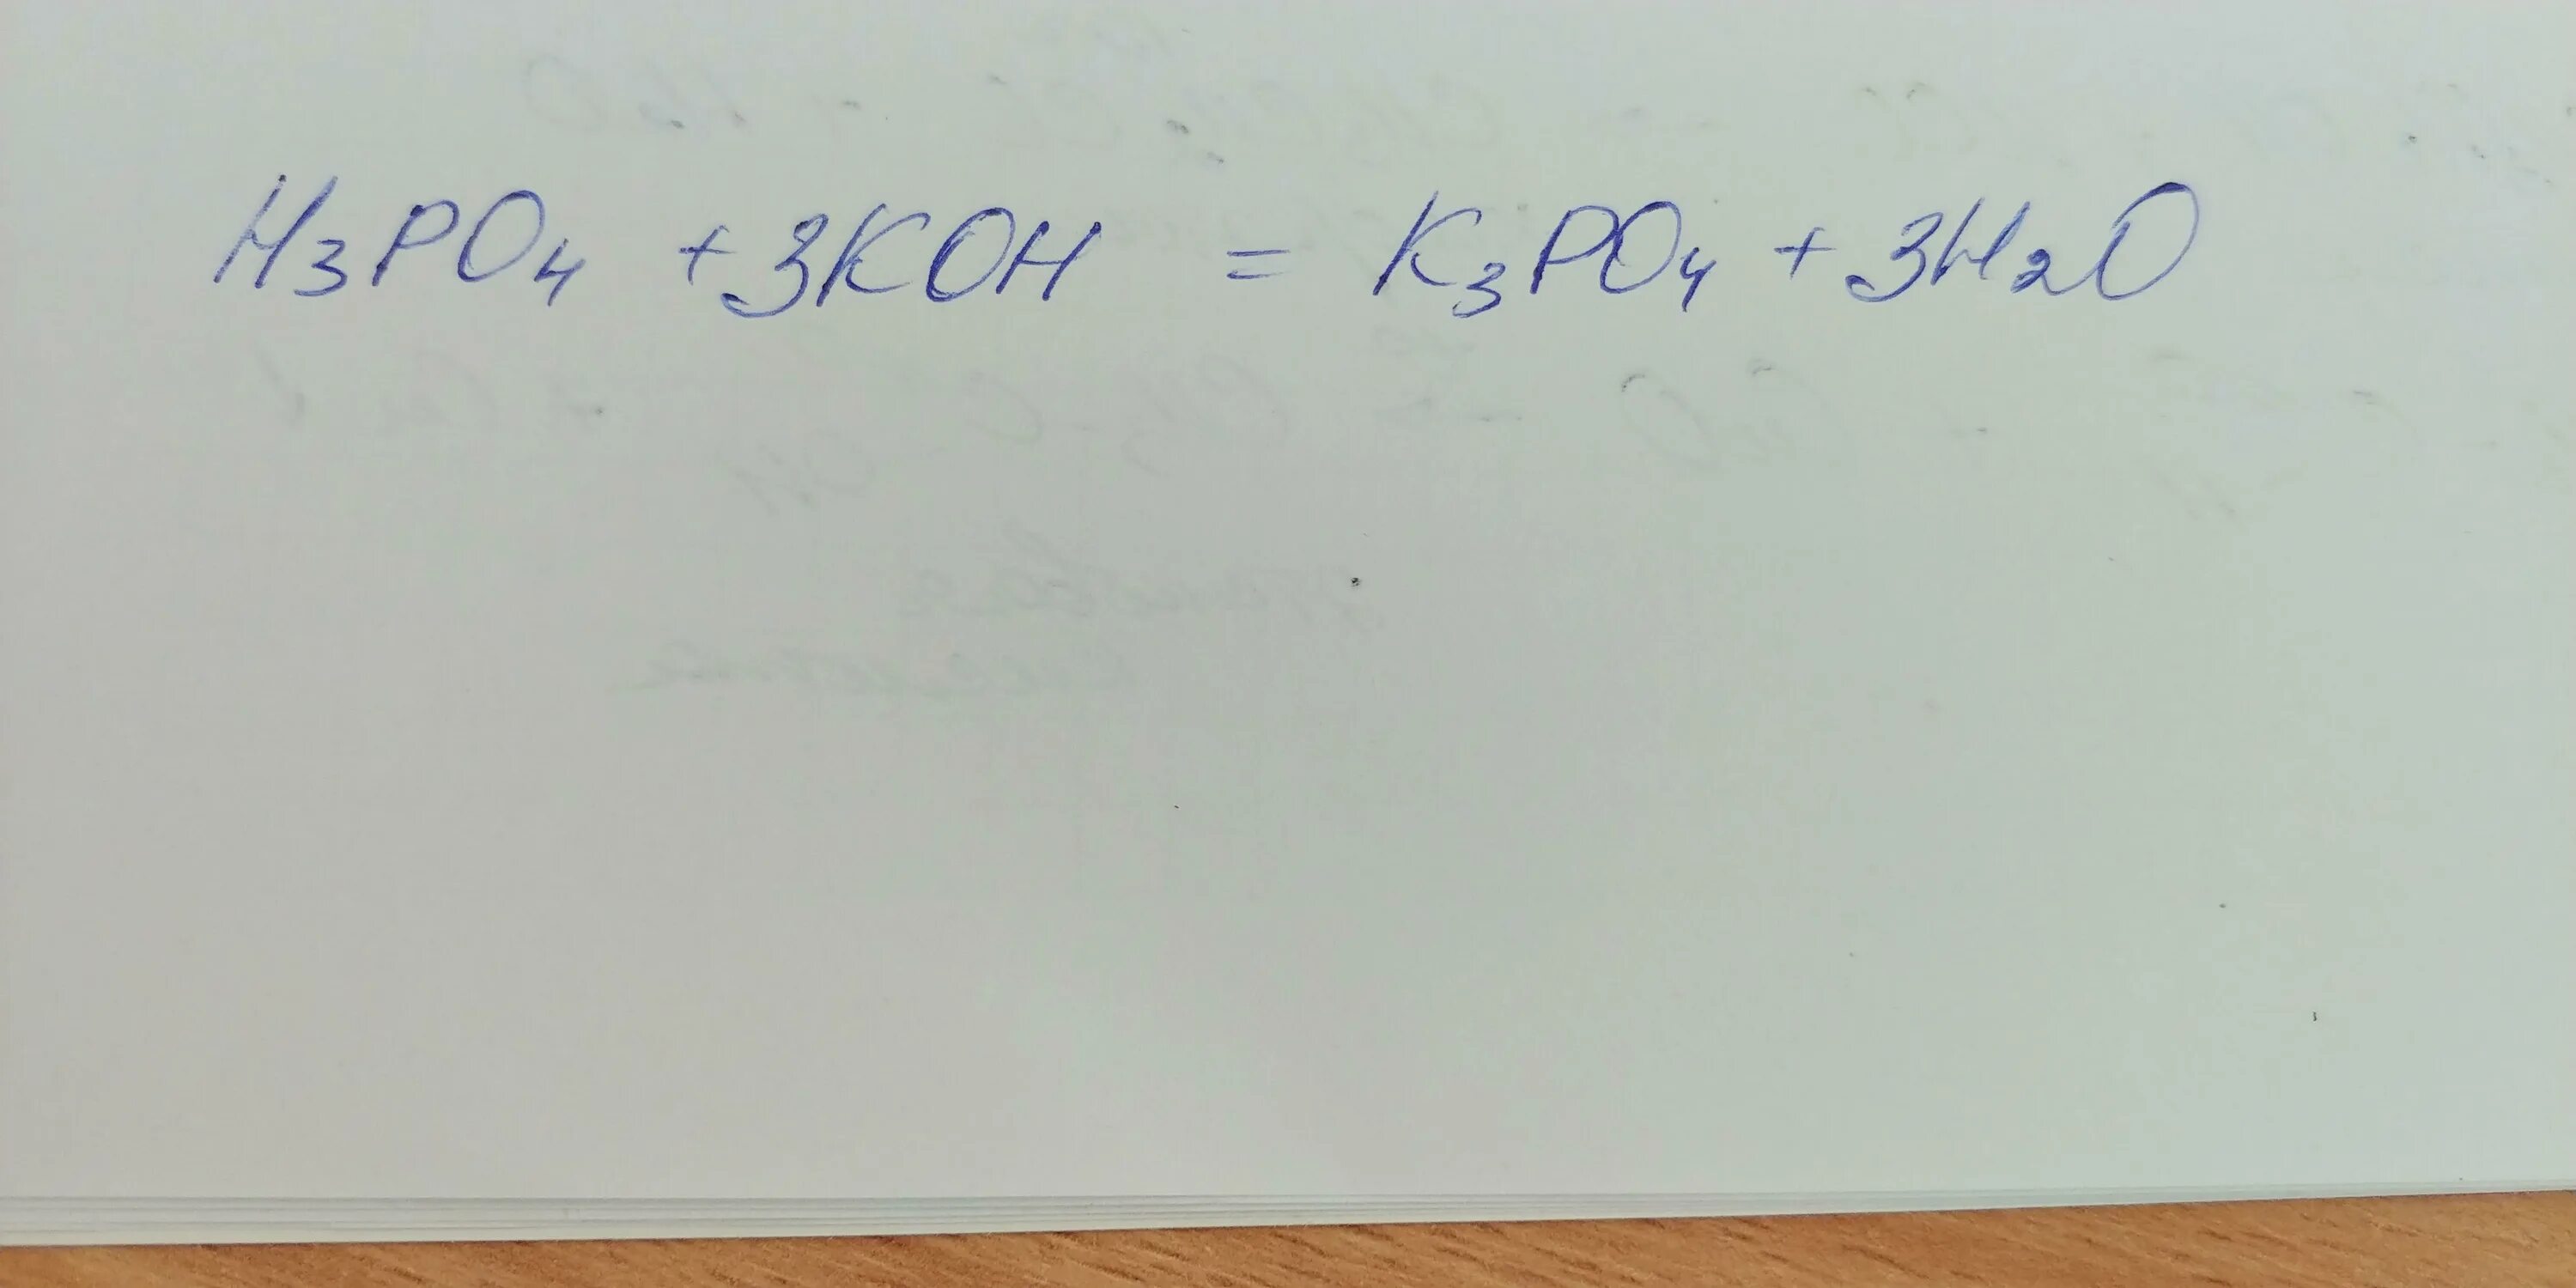 H₃PO₄ + 3KOH = K₃PO₄ + 3H₂O